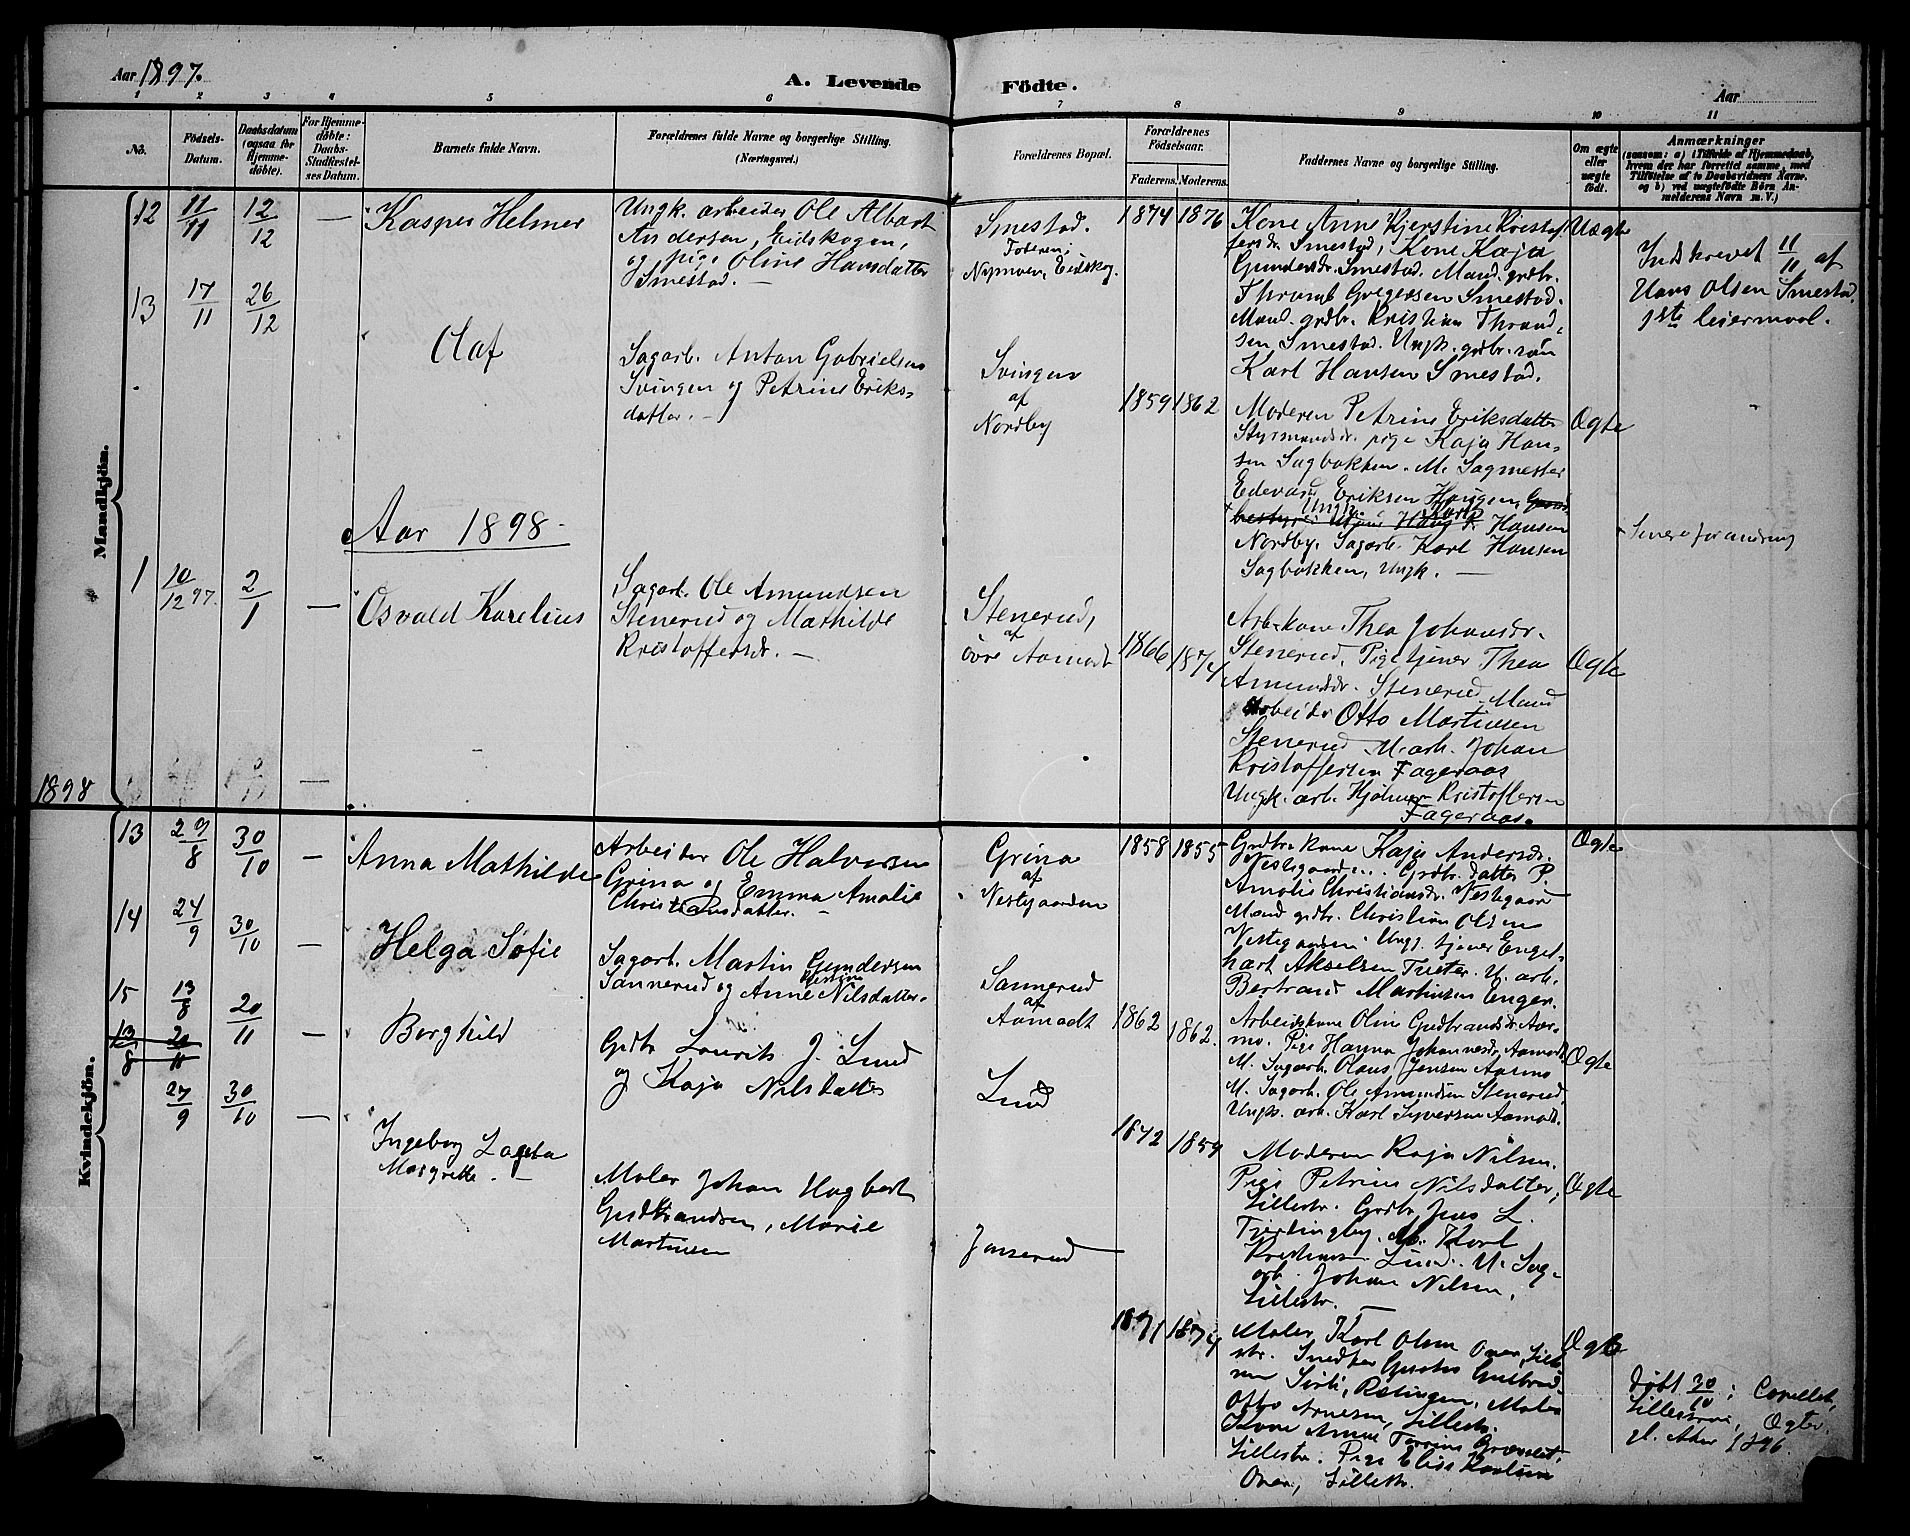 Aar 1897.
A. Levende Födte.
Aar
1 2 3 4 5 6 7 8 9 10 11
No.
Födsels-
Datum.
Daabsdatum
(ogsaa for
Hjemme-
döbte).
For Hjemme-
döbte:
Daabs-
Stadfæstel-
ses Datum.
Barnets fulde Navn.
Forældrenes fulde Navne og borgerlige Stilling.
(Næringsvei.)
Forældrenes Bopæl.
Forældrenes
Födselsaar.
Faderens. Moderens.
Faddernes Navne og borgerlige Stilling.
Om ægte
eller
uægte
født.
Anmærkninger
(saasom: a) i Tilfælde af Hjemmedaab,
hvem der har forrettet samme, med
Tilföielse af to Daabsvidners Navne.
og b) ved uægtefödte Börn An-
melderens Navn m. V.)
Mandkjön.
12 11/11 12/12 —
Kasper Helmer
Ungk. arbeider Ole Albert
Andersen, Eidskogen,
og pige Oline Hansdatter
Smestad. —
Smestad.
Faderen:
Nymoen, Eidskog.
1874 1876
Kone Anne Kjerstine Kristof-
fersdr. Smestad, Kone Kaja
Gundersdr. Smestad. Mand. grdbr.
Thrond Gregersen Smestad.
Mand. grdbr. Kristian Thrond-
sen Smestad. Ungk. grdbr. søn
Karl Hansen Smestad.
Uægte
Indskrevet 11/11 af
Hans Olsen Smestad,
1ste leiermaal.
13 17/11 26/12
Olaf
Sagarb. Anton Gabrielsen
Svingen og Petrine Eriks-
datter. —
Svingen
af
Nordby
1859 1862
Moderen Petrine Eriksdatter
Styrmandsdr. pige Kaja Han-
sen Sagbakken. M. Sagmester
Edevard Eriksen Haugen,
Ungk. Karl Hansen
Nordby. Sagarb. Karl Hansen
Sagbakken, Ungk. —
Ægte
Senere forandring
Aar 1898.
1 10/12 97. 2/1 —
Osvald Karelius
Sagarb. Ole Amundsen
Stenerud og Mathilde
Kristoffersdr. —
Stenerud,
af
övre Aamodt
1866 1874
Arb.kone Thea Johansdr.
Stenerud, Pige tjener Thea
Amundsdr. Stenerud. Mand
Arbeider Otto Martinsen
Stenerud M. arb. Johan
Kristoffersen Fageraas
Ungk. arb. Hjalmar Kristoffersen
Fageraas.
Ægte
1898
Kvindekjön.
13 29/8 30/10 —
Anna Mathilde
Arbeider Ole Halvorsen
Grina og Emma Amalie
Christiansdatter. —
Grina
af
Vestgaarden
1858 1855
Grdbr. kone Kaja Andersdr.
Vestgaarden. Grdbr. datter P.
Amalie Christiansdr. Vestgaard
Mand grdbr. Christian Olsen
Vestgaarden. Ungk. tjener Engel-
hart Akselsen Tueter. U. arb.
Bertrand Martinsen Enger.
Ægte
14 24/9 30/10 —
Helga Sofie
Sagarb. Martin Gundersen
Sannerud og Anne Nilsdatter.
Sannerud
af
Aamodt
1862 1862.
Arbeidskone Oline Gudbrandsdr. Aar-
mo. Pige Hanna Johannesdr. Aamodt
M. Sagarb. Olaus Jensen Aarmo
M. Sagarb. Ole Amundsen Stenerud
Ungk. arb. Karl Syversen Aamodt.
Ægte
15 13/8 20/11 —
13/8 20/11
Borghild
Grdbr. Lourits J. Lund
og Kaja Nilsdatter
Lund
1842 1859
Moderen Kaja Nilsen.
Pige Petrine Nilsdatter,
Lillestr. Grdbr. Jens L.
Tjerdingby. M. Karl
Kristiansen Lund. U. Sag-
arb. Johan Nilsen,
Lillestr. —
Ægte
27/9 30/10 —
Ingeborg Lovisa
Margrethe. —
Maler Johan Hagbart
Gudbrandsen, Marie
Martinsen
Jenserud
1871 1874
Maler Karl Olsen Oven, Lille-
str. Snedker Gustav Gulbrand-
sen Sörli, Rælingen, Maler
Otto Arnesen, Lillestr.
Kone Anne Torrine Græsslit,
Lillestr. Pige Elise Karlsen
Oven, Lillestr.
Ægte
Døbt 30/10 i Capellet,
Lillestrøm, Ægtev.
gl. Aker 1896.